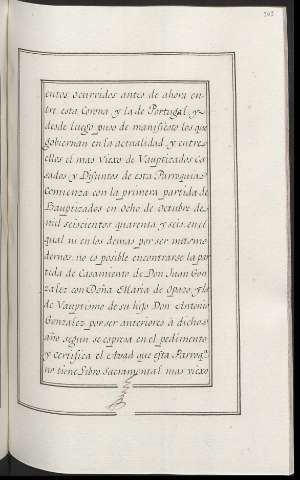 262
entos ocurridos antes de ahora en-
tre esta Corona, y la de Portugal, y
desde luego puso de manifiesto los que
gobiernan en la actualidad, y entre
ellos el mas Viexo de Vauptizados Ca-
sados y Difuntos de esta Parroquia
Comienza con la primera partida de
Bauptizados en Ocho de Octubre de
mil seiscientos quarenta y seis, en el
qual ni en los demas por ser mas mo
dernos, no es posible encontrarse la par
tida de Casamiento de Don Juan Gon
zalez con Doña Maria de Opazo, y la
de Vauptismo de su hijo Don Antonio
Gonzalez por ser anteriores à dicho
año segun se espresa en el pedimento
y certifica el Avad que esta Parroq.ª
no tiene Libro Sacramental mas viexo